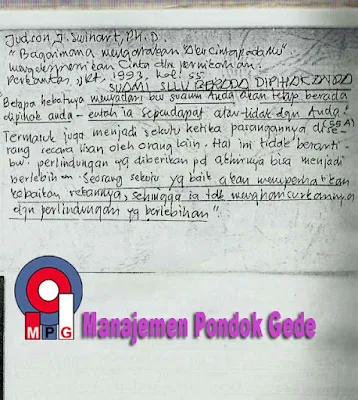 Judson, J. Swihart, Ph. D.
"Bagaimana mengatakan Aku cinta padamu"
mengekspresikan Cinta dlm pernikahan.
Perkantas, Jkt, 1993, hal: 55
SUAMI SLLU BERADA DIPIHAK ANDA
Betapa hebatnya menyadari bw suami Anda akan tetap berada
dipihak anda - entah ia sependapat atau tidak dgn Anda!
Termasuk juga menjadi sekutu ketika pasangannya dise-
rang secara lisan oleh orang lain. Hal ini tidak berarti
bw perlindungan yg diberikan pd akhirnya bisa menjadi
berlebihan. Seorang sekutu yg baik akan memperhatikan
kebaikan rekannya, sehingga ia tdk menghancurkannya
dgn perlindungan yg berlebihan".
MPG
Manajemen Pondok Gede